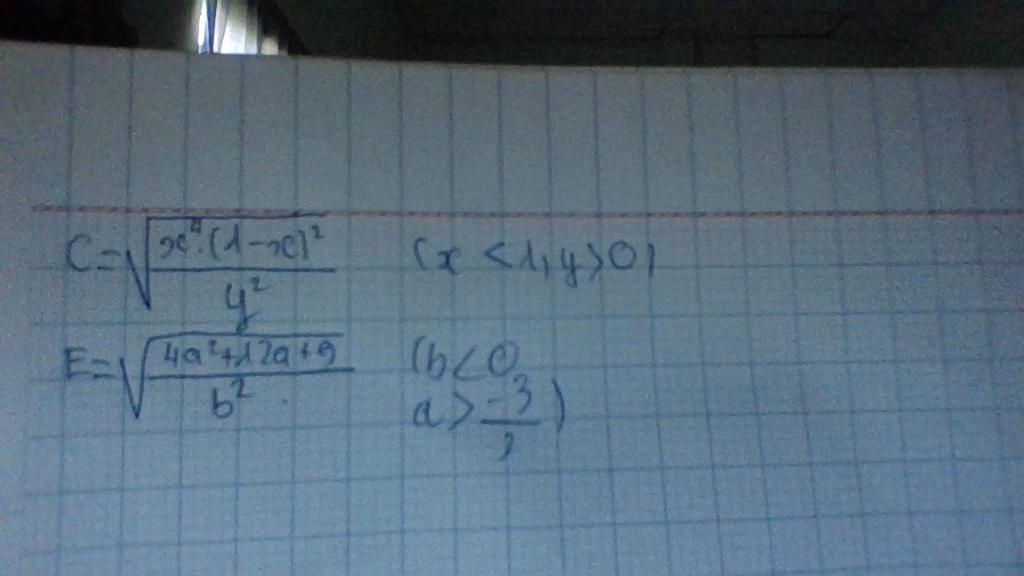 C = √(x⁴.(1-x)² / y²) (x < 1, y > 0)
E = √(4a²+12a+9 / b²) (b < 0
a > -3 / 2)